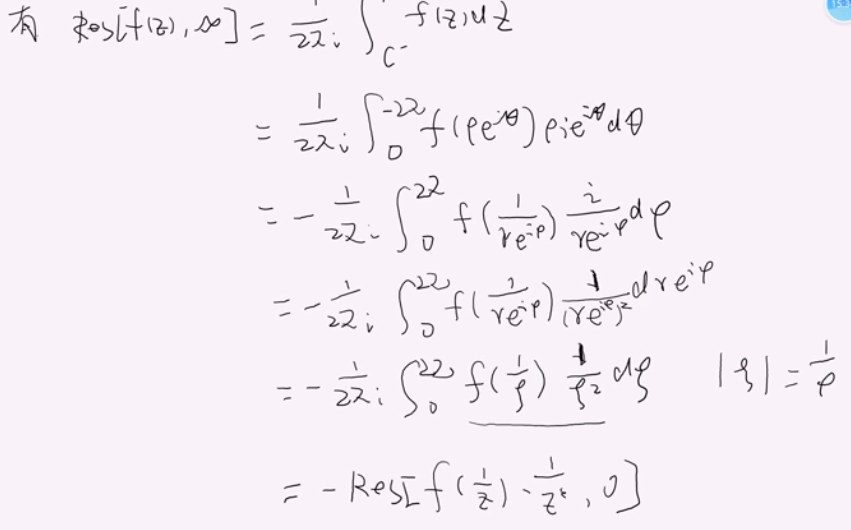 有 Res[f(z), ∞] = 1/2πi ∫_{C⁻} f(z)dz
= 1/2πi ∫_0^{-2π} f(ρe^{iθ}) ρie^{iθ}dθ
= - 1/2πi ∫_0^{2π} f(1/re^{iφ}) i/re^{iφ} dφ
= - 1/2πi ∫_0^{2π} f(1/re^{iφ}) 1/(re^{iφ})² dre^{iφ}
= - 1/2πi ∫_0^{2π} f(1/ζ) 1/ζ² dζ |ζ| = 1/ρ
= - Res[f(1/z)·1/z², 0]